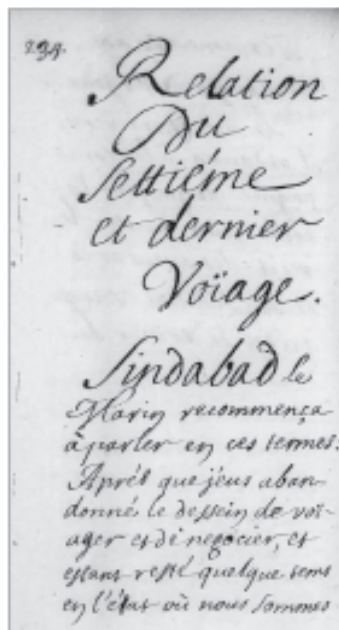 234.
Relation
Du
Settiéme
et dernier
Voïage.
Sindabad le
Marin recommença
à parler en ces termes.
Aprés que j'eus aban-
donné le dessein de voï-
ager et de negocier, et
estant resté quelque tems
en l'état où nous sommes